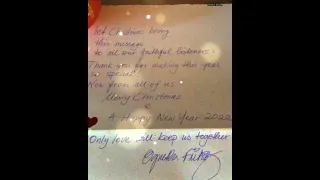 Let Christmas bring
this message
to all our faithful
Thank you for making this year
so special
Now from all of us
Merry Christmas
&
A Happy New Year 2022
Only love will keep us together